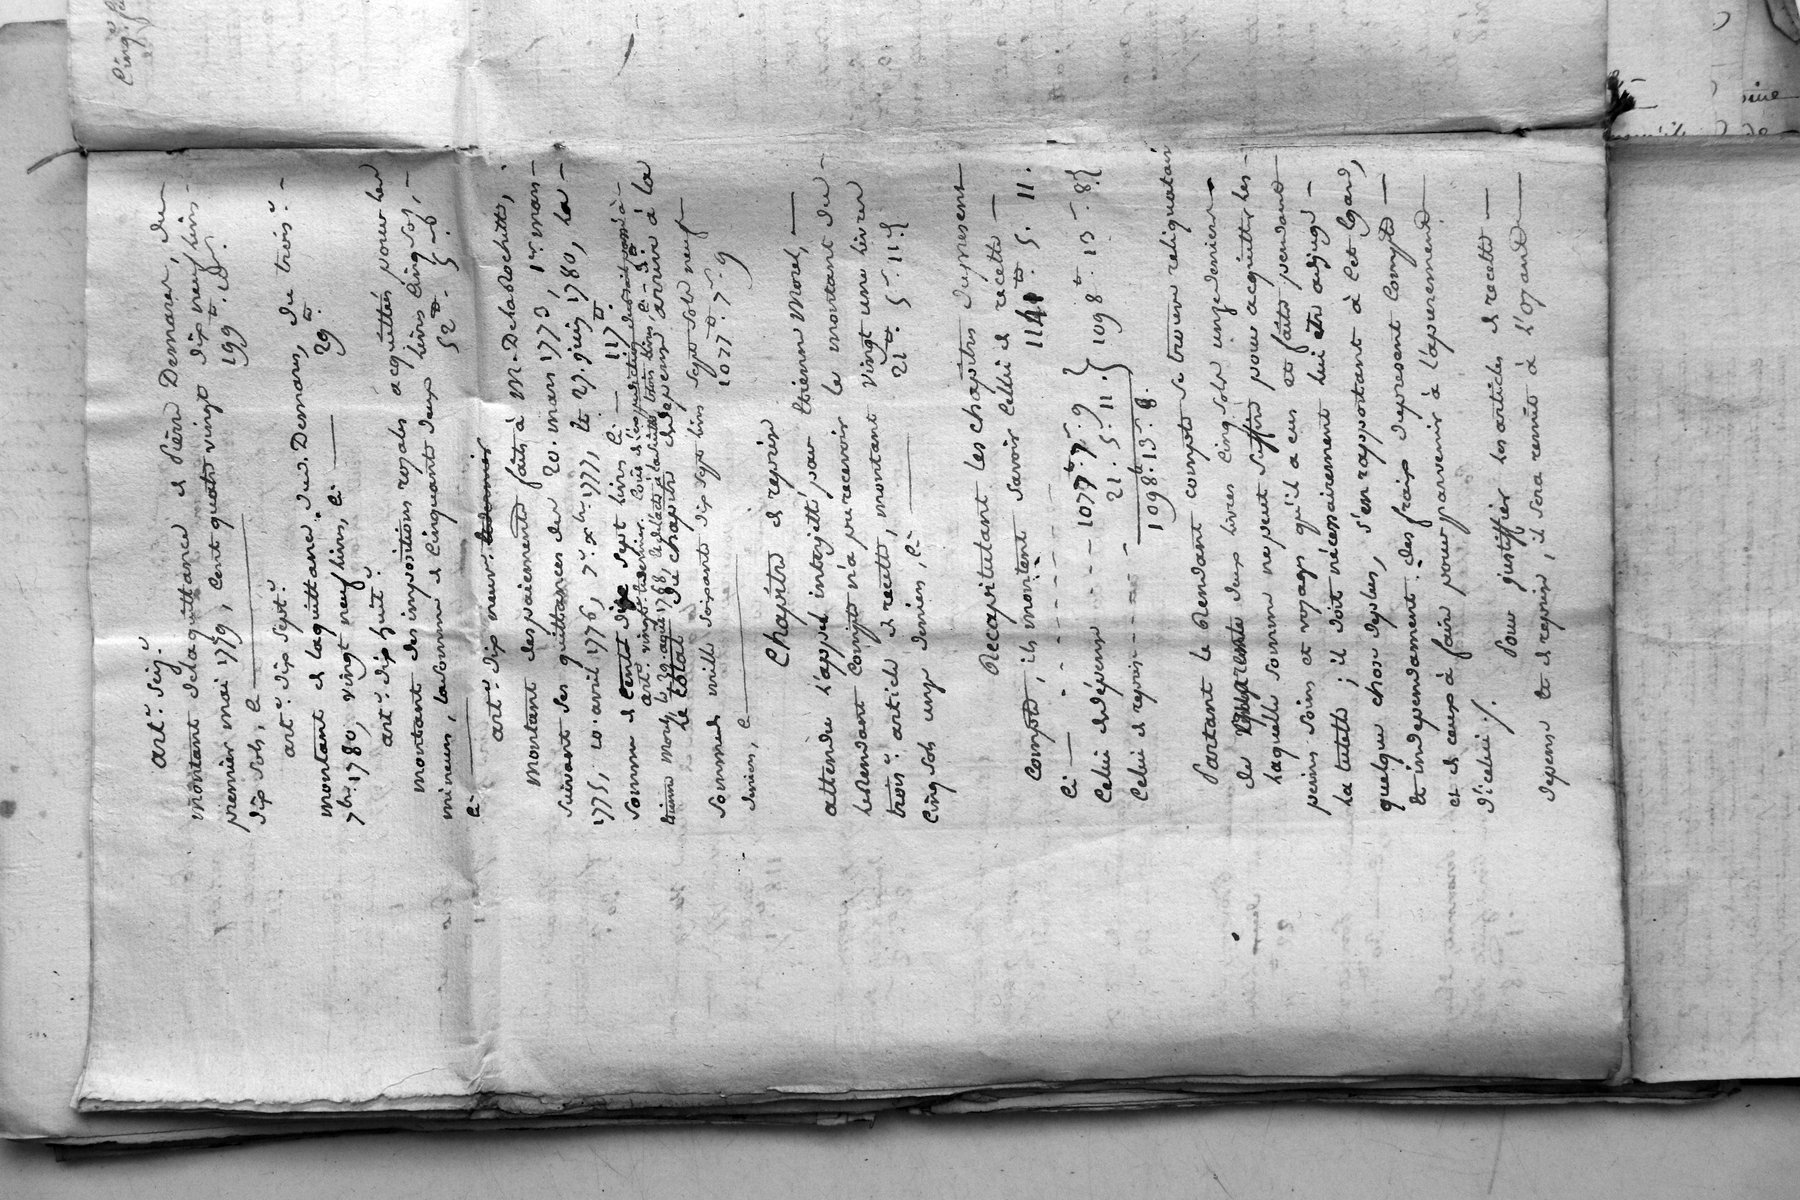 art.e Seiz.e
montant de la quittance de Pierre Demarer, du
premier mai 1779, Cent quatre vingt dix neuf livres
dix sols, Ci 199 tt. 10.
art.e dix Sept.e
montant de la quittance dud. Demars, du trois.e
7bre. 1780, vingt neuf livres, Ci 29 tt.
art.e dix huit.e
montant des impositions royales acquittés pour les
mineurs, la somme de Cinquante deux livres Cinq Sols,
Ci 52 tt. 5 s.
art.e dix neuv. et dernier
montant des paiements faits à M. Delarochette,
Suivant Ses quittances des 20. mars 1773, 1er. mars
1775, 10. avril 1776, 2.e xbre. 1777, et 27. juin 1780, la
Somme de Cent dix Sept livres Ci 117 tt.
art. vingt. et dernier. Coût de l'expédition
Etienne Morel, le 29. août 1768, trois livres Ci 3 tt.
Le total du chapitre de dépense arrive à la
Somme de mille Soixante dix Sept livres Sept Sols neuf
deniers, Ci 1077 tt. 7 s. 9
Chapitre de reprise
attendu l'appel interjetté par Etienne Morel,
le Rendant Compte n'a pu recevoir le montant du
trois.e article de recette, montant vingt une livres
Cinq Sols onze deniers, Ci 21 tt. 5 s. 11 d
Recapitulant les chapitres du present
Compte, ils montent Savoir Celui de recette
Ci 1141 tt. 5. 11.
Celui de dépense 1077 tt. 7 s. 9
Celui de reprise 21. 5. 11. } 1098 tt. 13 s. 8 d
1098 tt. 13 s. 8.
Partant le Rendant compte se trouve reliquataire
de quarante deux livres Cinq Sols onze deniers
Laquelle Somme ne peut Suffire pour acquitter les
peines Soins et voyages qu'il a eus et faits pendant
La tutelle ; il doit nécessairement lui etre adjugé
quelque chose de plus, S'en rapportant à Cet égard,
et independament des frais du present Compte
et de ceux à faire pour parvenir à l'apurement
d'icelui ./.
Pour justiffier les articles de recette
depense et de reprise, il sera remis à l'oyant